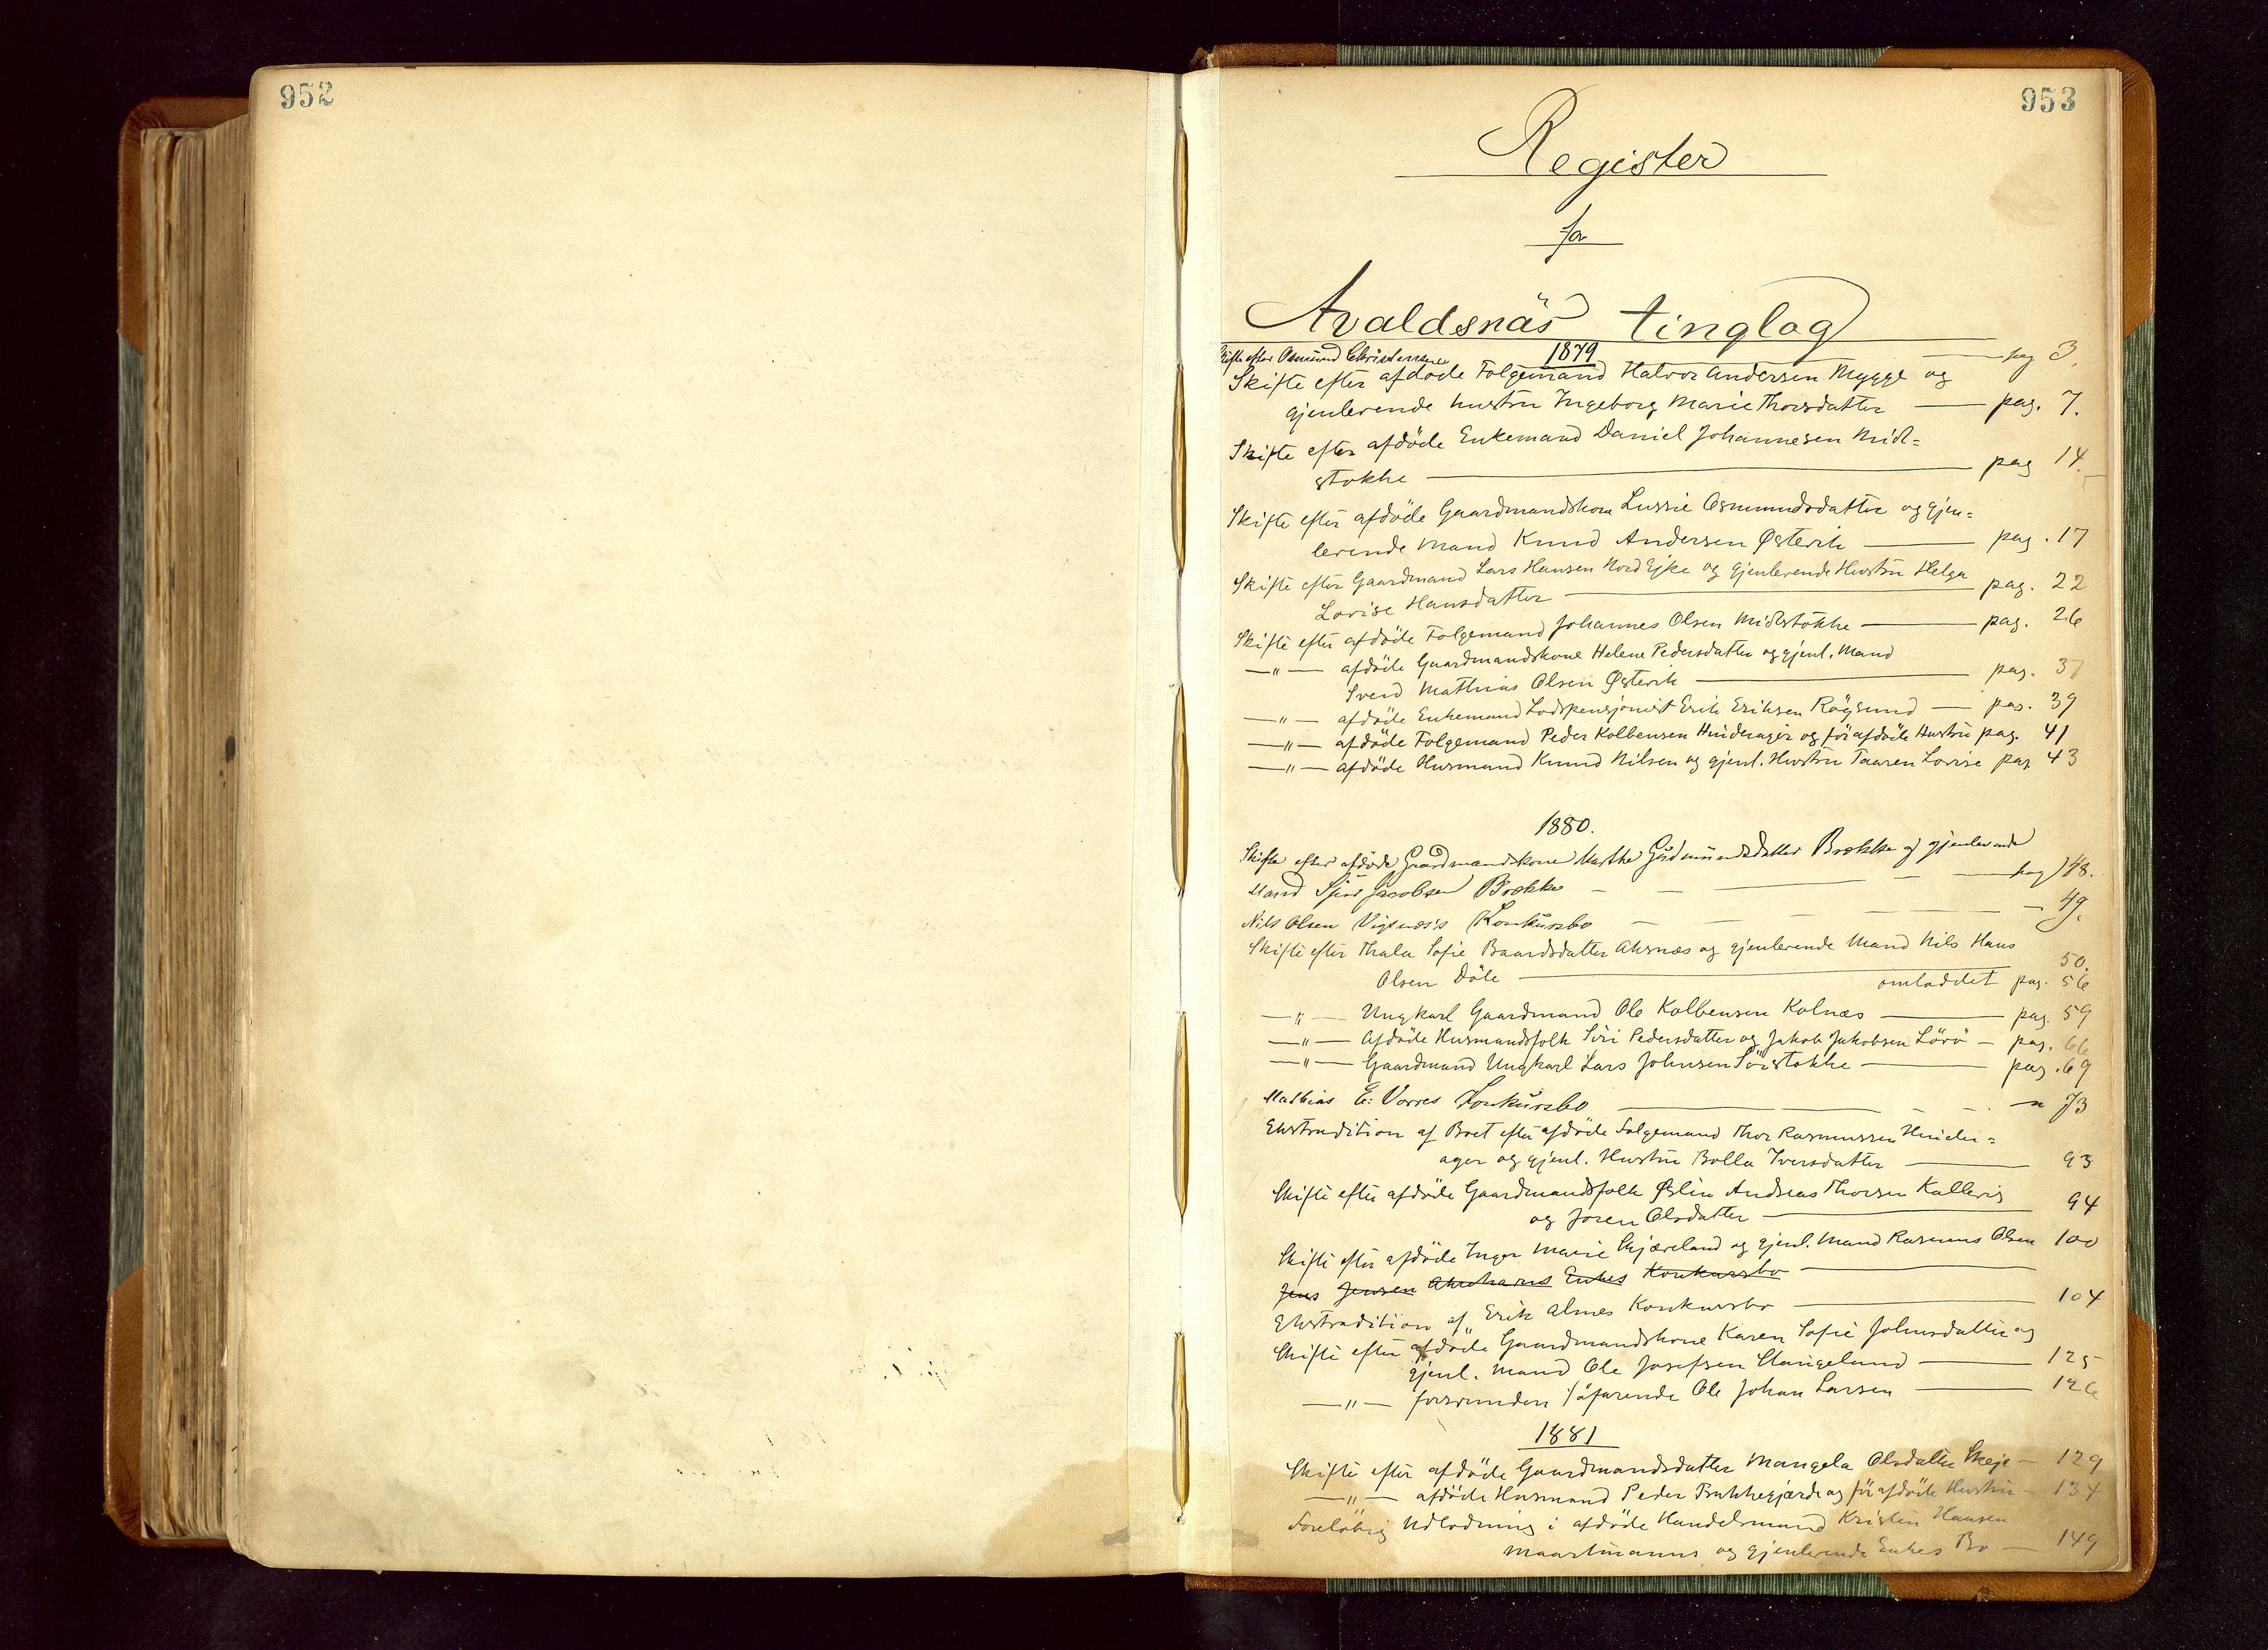 952
953
Register
for
Avaldsnäs tinglag
1879
Skifte efter Osmund Christensen — pag 3.
Skifte efter afdøde Folgemand Halvor Andersen Mygge og
gjenlevende hustru Ingeborg Marie Thorsdatter — pag. 7.
Skifte efter afdöde Enkemand Daniel Johannesen Mid-
stokke — pag 14.
Skifte efter afdöde Gaardmandskone Lussie Osmundsdatter og gjen-
levende Mand Knud Andersen Østerik — pag. 17
Skifte efter Gaardmand Lars Hansen Nord Ejke og gjenlevende Hustru Helga
Lovise Hansdatter — pag. 22
Skifte efter afdöde Folgemand Johannes Olsen Midstokke — pag. 26
—"— afdöde Gaardmandskone Helene Pedersdatter og gjenl. Mand
Svend Mathias Olsen Østerik — pag. 37
—"— afdöde Enkemand Lodspensjonist Erik Eriksen Rögsund — pag. 39
—"— afdöde Folgemand Peder Kolbensen Hinderager og förafdöde Hustru pag. 41
—"— afdöde Husmand Knud Nilsen og gjenl. Hustru Taaren Lovise pag 43
1880.
Skifte efter afdöde Gaardmandskone Marthe Gudmundsdatter Brekke og gjenlevende
Mand Sjur Jacobsen Brekke — pag 48.
Nils Olsen Vigsnes's Konkursbo — 49.
Skifte efter Thala Sofie Baardsdatter Aksnæs og gjenlevende Mand Nils Hans
50.
Olsen Döle — omladdet pag. 56
—"— Ungkarl Gaardmand Ole Kolbensen Kolnæs — pag. 59
—"— Afdöde Husmandsfolk Siri Pedersdatter og Jakob Jakobsen Lövö — pag. 66
—"— Gaardmand Ungkarl Lars Johnsen Sörstokke — pag. 69
Mathias E. Vorres Konkursbo — " 73
Ekstradition af Boet efter afdöde Folgemand Thor Rasmussen Hinder-
ager og gjenl. Hustru Bolla Iversdatter — 93
Skifte efter afdöde Gaardmandsfolk Østen Andreas Thorsen Kallevig
og Joren Olsdatter — 94
Skifte efter afdöde Inger Marie Skjæreland og gjenl. Mand Rasmus Olsen 100
Jens Jensen Abrahams Enkes Konkursbo —
Ekstradition af Erik Alnes Konkursbo — 104
Skifte efter afdöde Gaardmandskone Karen Sofie Johnsdatter og
gjenl. Mand Ole Josefsen Stangeland — 125
—"— forsvunden Söfarende Ole Johan Larsen — 126
1881
Skifte efter afdöde Gaardmandsdatter Mangela Olsdatter Skeje — 129
—"— afdöde Husmand Peder Bakkegjærde og förafdöde Hustru — 134
Foreløbig Udlodning i afdöde Handelsmand Kristen Hansen
Maartmanns og gjenlevende Enkes Bo — 149